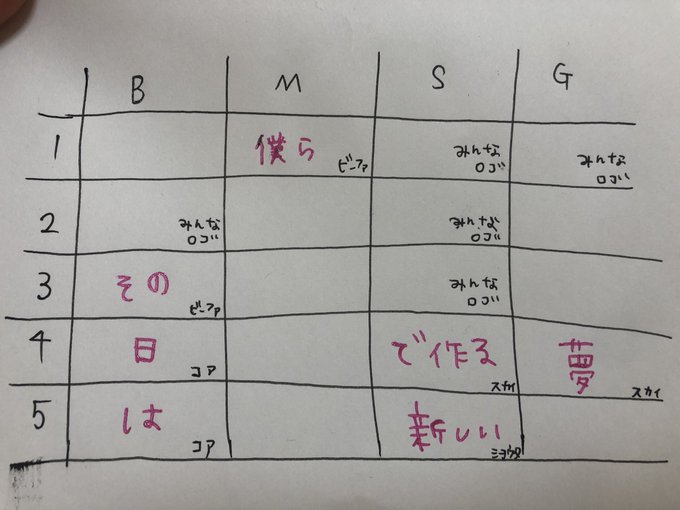 B M S G
1 僕ら ビーファ みんな ロゴ みんな ロゴ
2 みんな ロゴ みんな ロゴ
3 その ビーファ みんな ロゴ
4 日 コア で作る スカイ 夢 スカイ
5 は コア 新しい